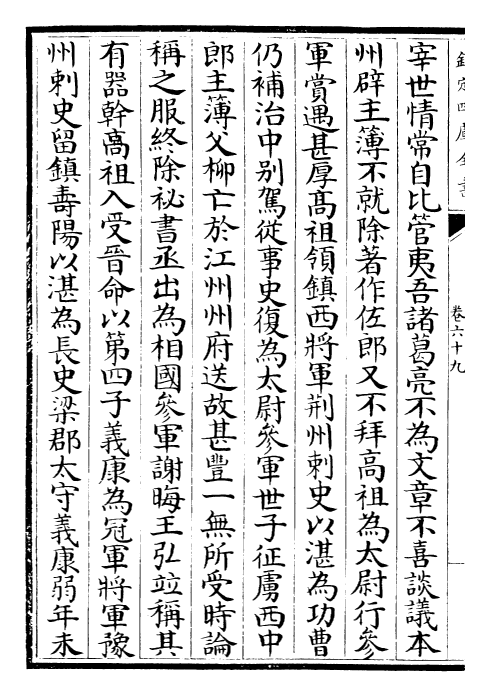 宰世情常自比管夷吾諸葛亮不為文章不喜談議本
州辟主簿不就除著作佐郎又不拜高祖為太尉行參
軍賞遇甚厚髙祖領鎮西將軍荆州刺史以湛為功曹
仍補治中别駕從事史復為太尉參軍世子征虜西中
郎主簿父栁亡於江州州府送故甚豐一無所受時論
稱之服終除祕書丞出為相國參軍謝晦王弘竝稱其
有器幹高祖入受晉命以第四子義康為冠軍將軍豫
州刺史留鎮壽陽以湛為長史梁郡太守義康弱年未
卷六十九